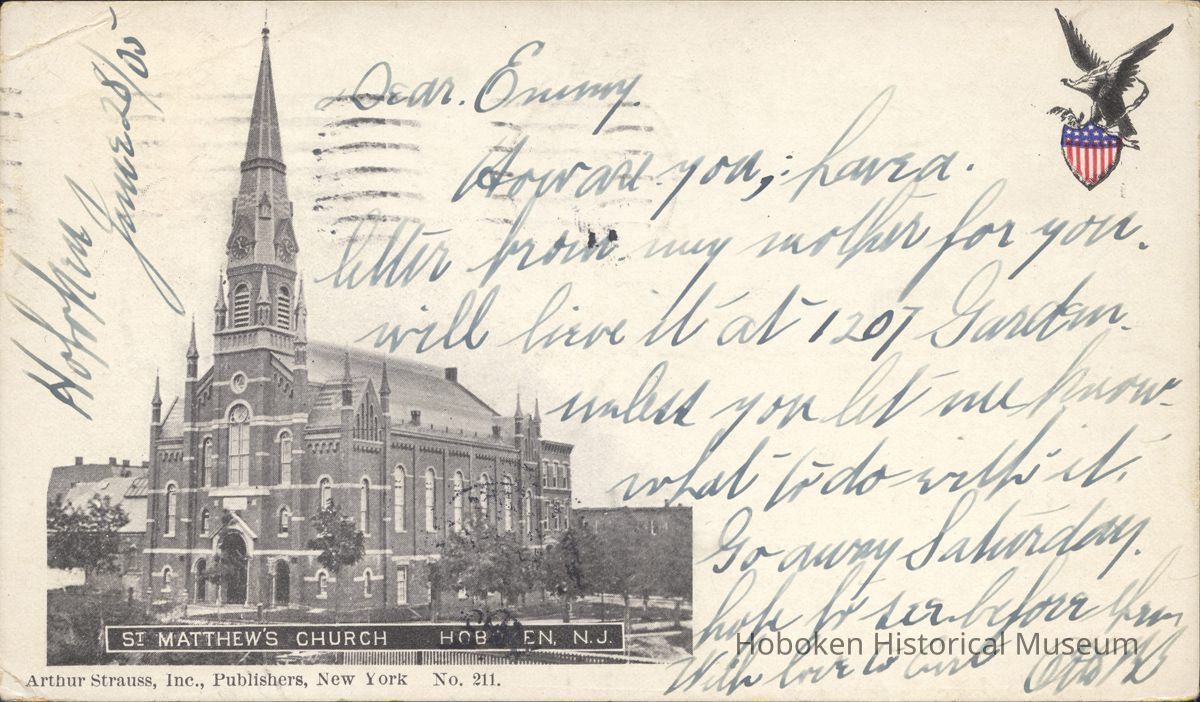 Hoboken
June 28/05
Dear. Emmy.
How are you, have a.
letter from my mother for you.
will lieve it at 1207 Garden.
unless you let me know.
what to do with it.
Go away Saturday.
hope to see before then
With love to
ST MATTHEW'S CHURCH HOBOKEN, N.J.
Hoboken Historical Museum
Arthur Strauss, Inc., Publishers, New York No. 211.